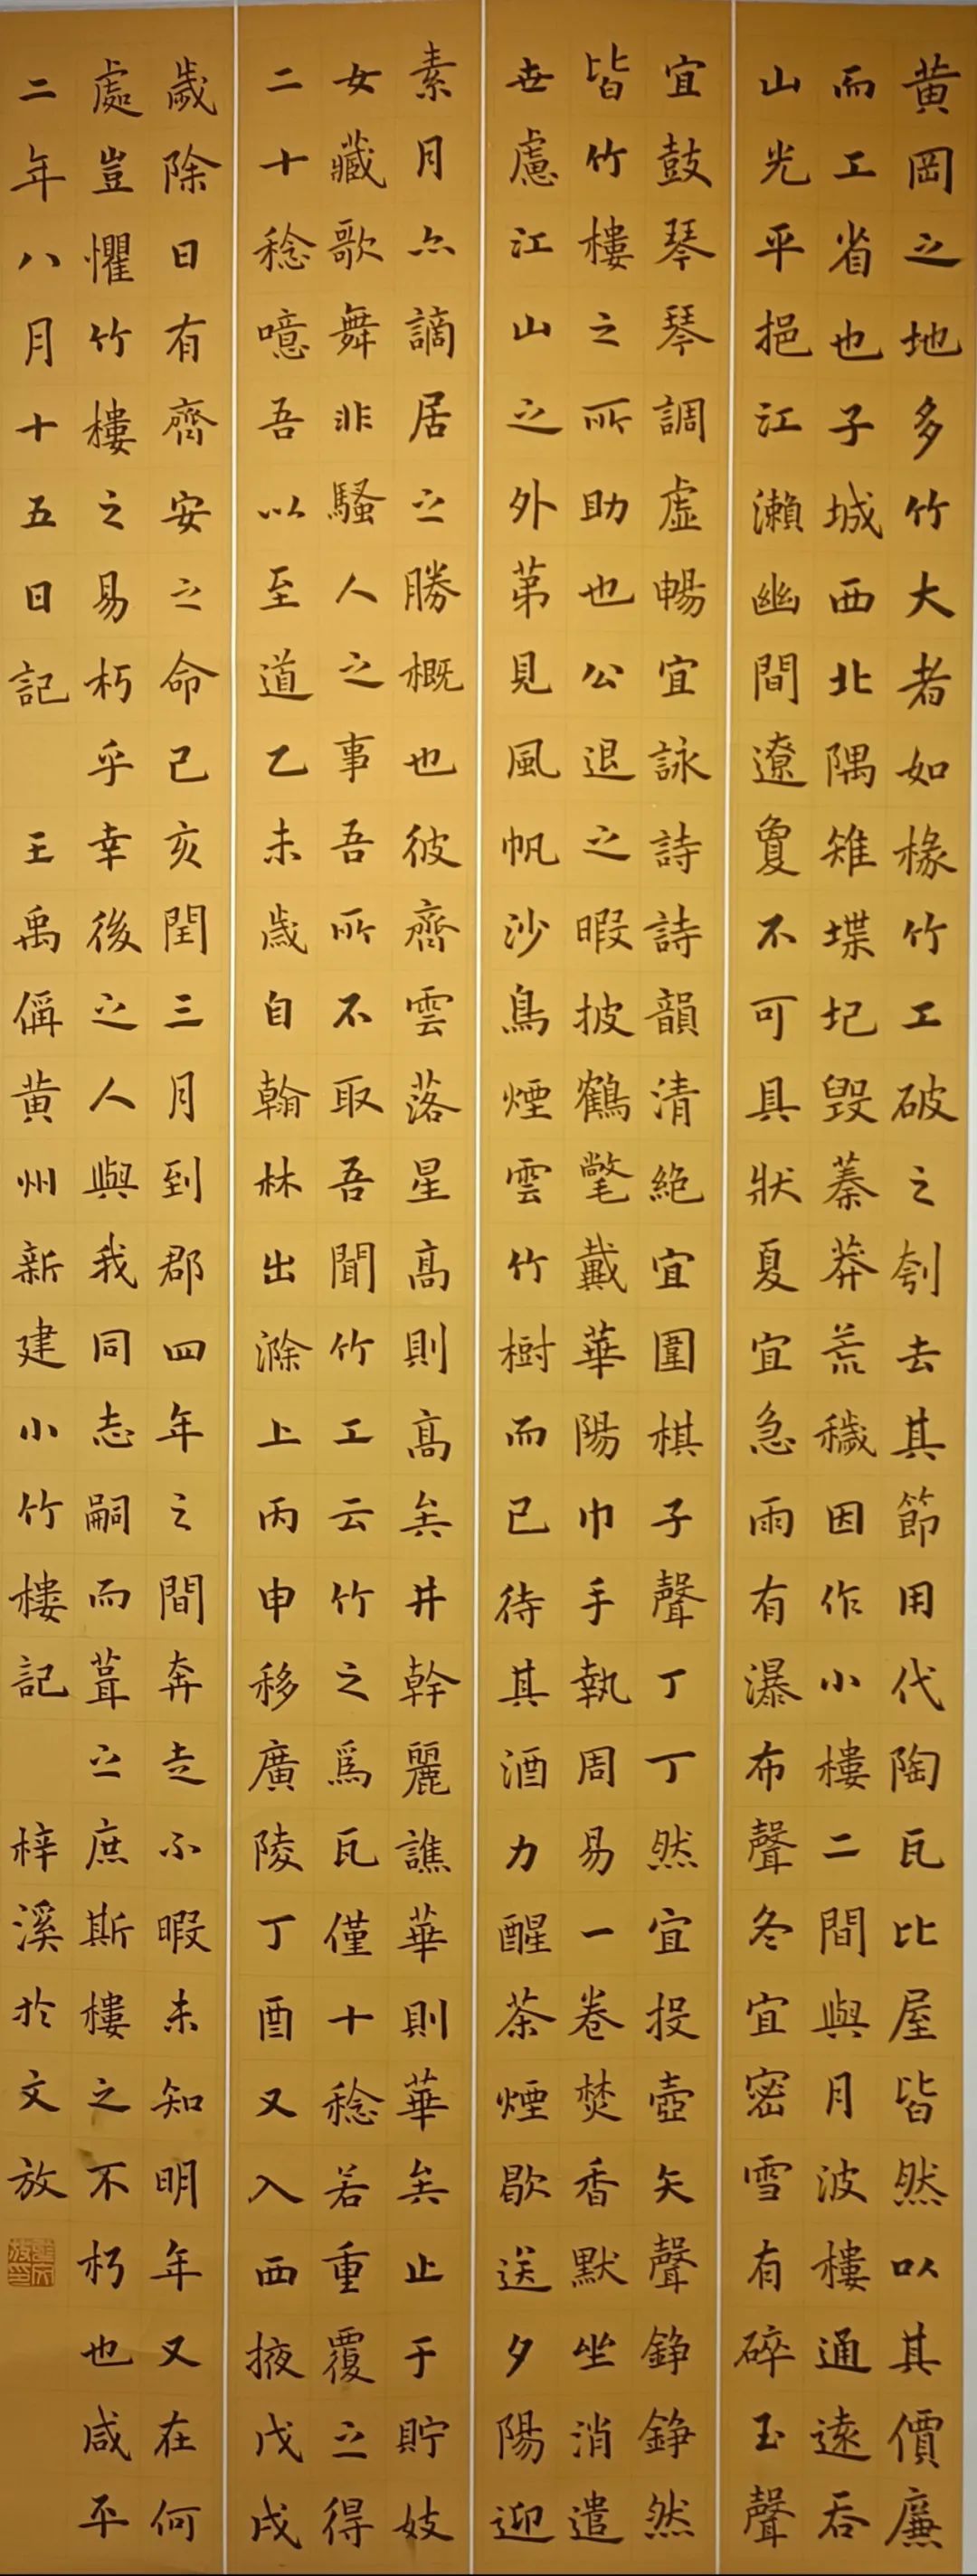 黄岡之地多竹大者如椽竹工破之刳去其節用代陶瓦比屋皆然以其價廉
而工省也子城西北隅雉堞圮毁蓁莽荒穢因作小樓二間與月波樓通遠吞
山光平挹江瀨幽闃遼夐不可具狀夏宜急雨有瀑布聲冬宜密雪有碎玉聲
宜鼓琴琴調虛暢宜詠詩詩韻清絶宜圍棋子聲丁丁然宜投壺矢聲錚錚然
皆竹樓之所助也公退之暇披鶴氅戴華陽巾手執周易一卷焚香默坐消遣
世慮江山之外第見風帆沙鳥煙雲竹樹而已待其酒力醒茶煙歇送夕陽迎
素月亦謫居之勝概也彼齊雲落星高則高矣井幹麗譙華則華矣止于貯妓
女藏歌舞非騷人之事吾所不取吾聞竹工云竹之爲瓦僅十稔若重覆之得
二十稔噫吾以至道乙未歲自翰林出滁上丙申移廣陵丁酉又入西掖戊戌
歲除日有齊安之命己亥閏三月到郡四年之間奔走不暇未知明年又在何
處豈懼竹樓之易朽乎幸後之人與我同志嗣而葺之庶斯樓之不朽也咸平
二年八月十五日記 王禹偁黄州新建小竹樓記 梓溪於文放